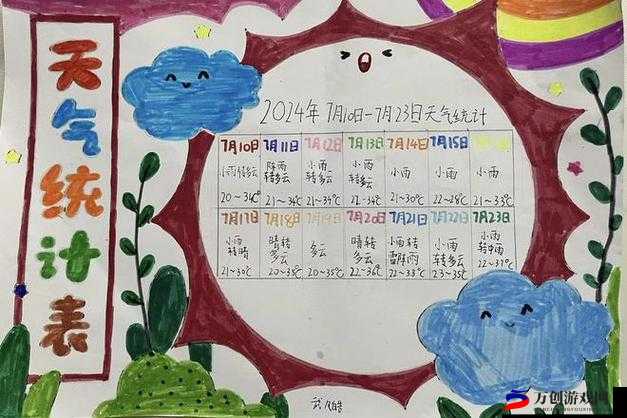 天气统计表
2024年7月10日-7月23日天气统计
7月10日 7月11日 7月12日 7月13日 7月14日 7月15日
小雨转多云 阵雨转多云 小雨转多云 小雨转多云 小雨 小雨 小雨
20~34℃ 21~34℃ 21~34℃ 22~34℃ 21~30℃ 22~28℃ 21~33℃
7月17日 7月18日 7月19日 7月20日 7月21日 7月22日 7月23日
小雨转晴 晴转多云 多云 晴转多云 小雨转雷阵雨 小雨转多云 小雨转中雨
21~30℃ 20~35℃ 20~35℃ 22~36℃ 22~33℃ 23~35℃ 22~37℃
万创游戏网